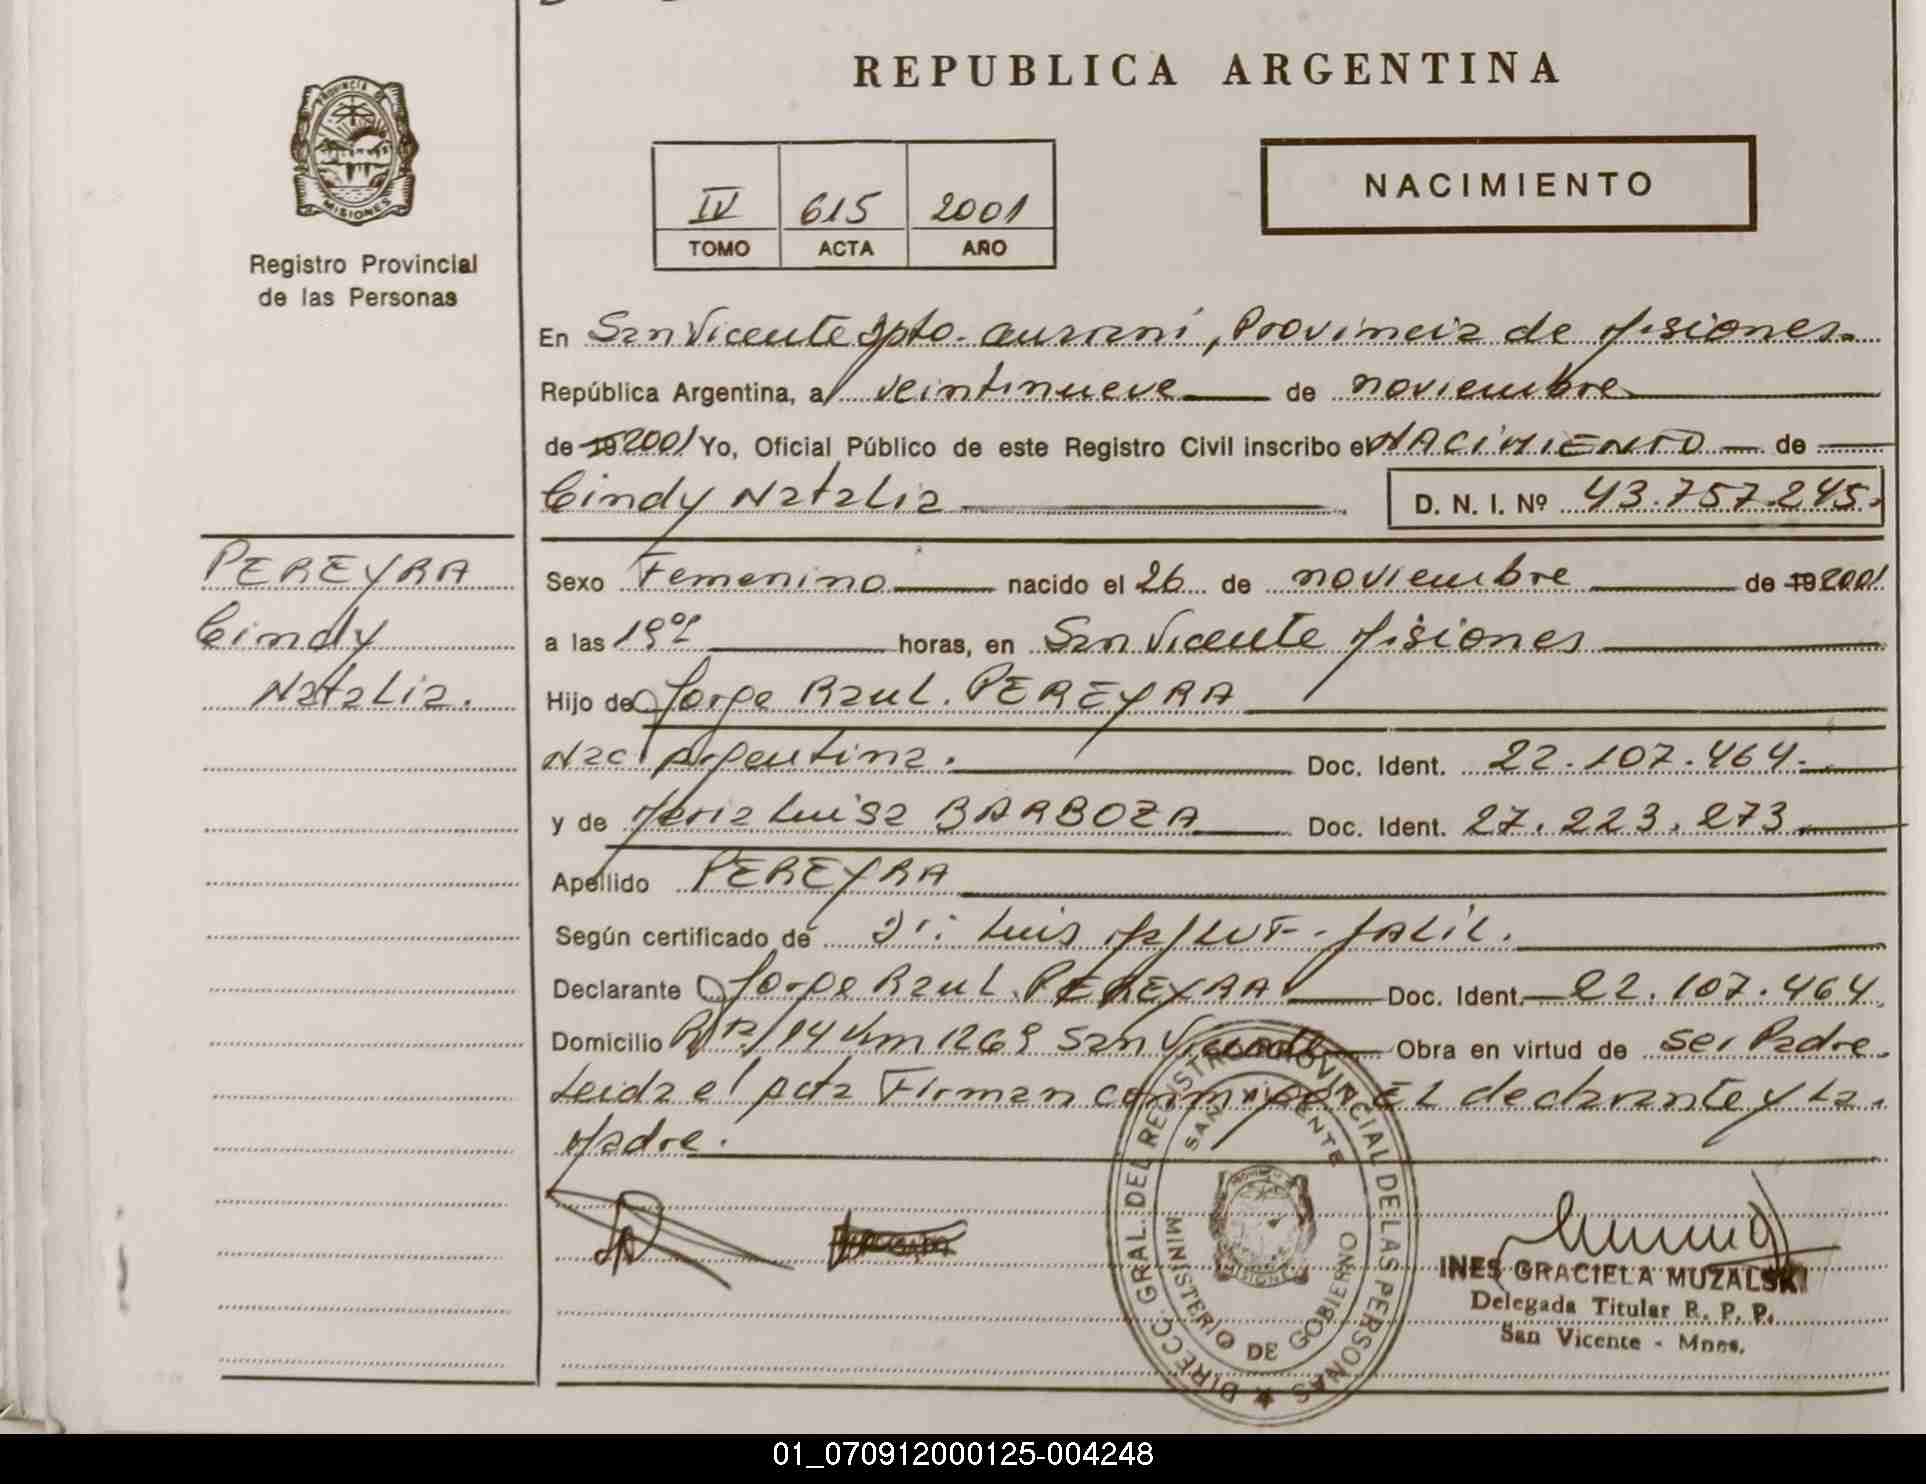 REPUBLICA ARGENTINA
PROVINCIA DE
MISIONES
Registro Provincial
de las Personas
IV 615 2001
TOMO ACTA AÑO
NACIMIENTO
En San Vicente Dpto. Guaraní, Provincia de Misiones.
República Argentina, a veintinueve de noviembre
de 19 2001 Yo, Oficial Público de este Registro Civil inscribo el NACIMIENTO de
Cindy Natalia D. N. I. Nº 43.757.245.
PEREYRA
Cindy
Natalia.
Sexo Femenino nacido el 26 de noviembre de 19 2001
a las horas, en San Vicente Misiones
Hijo de Jorge Raul. PEREYRA
Nac. Argentina. Doc. Ident. 22.107.464.
y de Maria Luisa BARBOZA Doc. Ident. 27.223.273
Apellido PEREYRA
Según certificado de Dr: Luis JALIL.
Declarante Jorge Raul. PEREYRA Doc. Ident. 22.107.464
Domicilio 14 Km 1269 San Vicente Obra en virtud de ser Padre.
Leida el Acta Firman conmigo EL declarante y La.
Madre.
DIRECC. GRAL. DEL REGISTRO PROVINCIAL DE LAS PERSONAS
SAN VICENTE
MISIONES
MINISTERIO DE GOBIERNO
INES GRACIELA MUZALSKI
Delegada Titular R. P. P.
San Vicente - Mnes.
01_070912000125-004248